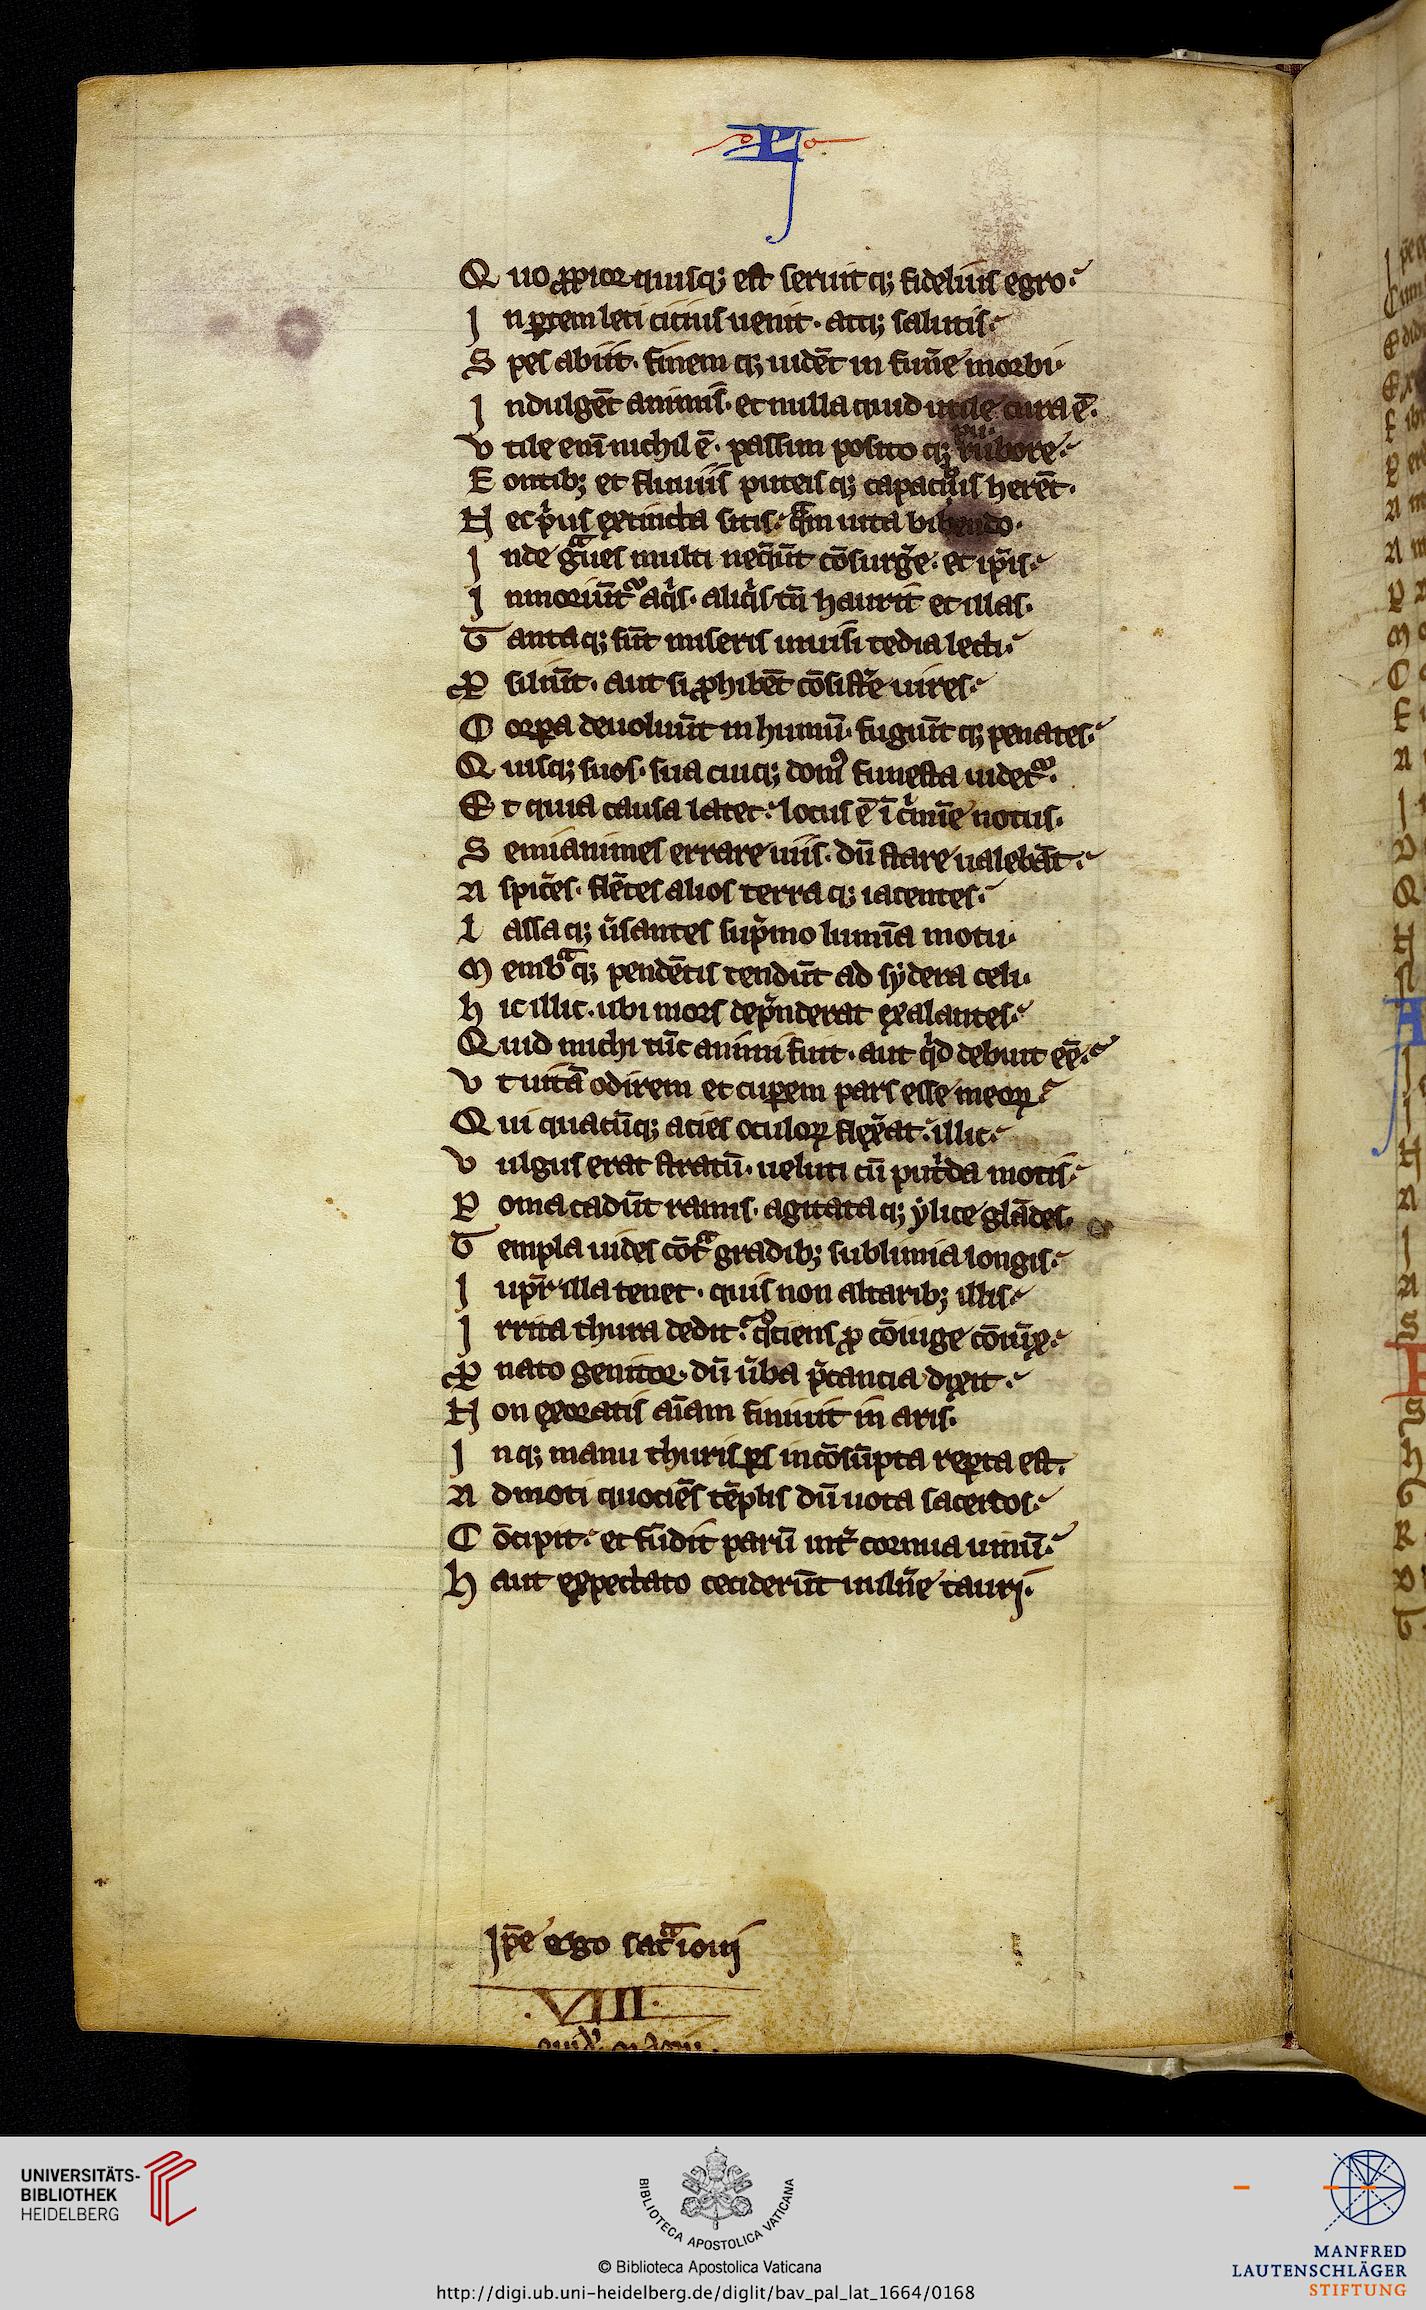 Q uo ꝓpior quisqꝫ est seruit qꝫ fidelius egro.
I n ꝑtem leti citius uenit. atqꝫ salutis.
S pes abiit. finemqꝫ uidēt in fun̄e morbi.
I ndulgēt animis. et nulla quid utile cura ē.
V tile enī nichil ē. passim posito qꝫ rubore.
pu.
F ontibꝫ et fluuiis puteis qꝫ capacibus herēt.
N ec pͥus extincta sitis. qͣm uita bibendo.
I nde gͣues multi neqūt cōsurge. et ip̄is.
I nmoriūtᷣ aqͥs. aliqͥs tn̄ haurit et illas.
T antaqꝫ sūt miseris inuisi tedia lecti.
P siliūt. aut si ꝓhibēt cōsiste uires.
C orꝑa deuoluūt in humū. fugiūt qꝫ penates.
Q uisqꝫ suos. sua cuiqꝫ domꝰ funesta uidetᷣ.
E t quia causa latet. locus ē ī cͥmīe notus.
S emianimes errare uiis. dū stare ualebāt.
A spic̄es. flētes alios terra qꝫ iacentes.
L assa qꝫ ūsantes sup̄mo lumīa motu.
M embͣqꝫ pendētis tendūt ad sydera celi.
h ic illic. ubi mors dep̄nderat exalantes.
Q uid michi tūc animi fuit. aut qͥd debuit eē.
V t uitā odirem et cuꝑem pars esse meoꝝ.
Q ui quacūqꝫ acies oculoꝝ flex̄at. illic.
V ulgus erat stratū. ueluti cū putͥda motis.
P oma cadūt ramis. agitata qꝫ ylice glādes.
T empla uides cōtͣ gradibꝫ sublimia longis.
I up̄r illa tenet. quis non altaribꝫ illis.
I rrita thura dedit. qͦciens ꝓ cōiuge cōiūx.
P nato genitor. dū ūba p̄cancia dixit.
N on exoratis aīam finiuit in aris.
I nqꝫ manu thuris ꝑs incōsūpta reꝑta est.
A dmoti quociēs tēplis dū uota sacerdos.
C ōcipit. et fūdit parū int̄ cornua uinū.
h aut expectato ceciderūt uuln̄e tauri.
Ip̄e ego sacͣ ioui
.VIII.
UNIVERSITÄTS-
BIBLIOTHEK
HEIDELBERG
BIBLIOTECA APOSTOLICA VATICANA
© Biblioteca Apostolica Vaticana
http://digi.ub.uni-heidelberg.de/diglit/bav_pal_lat_1664/0168
MANFRED
LAUTENSCHLÄGER
STIFTUNG